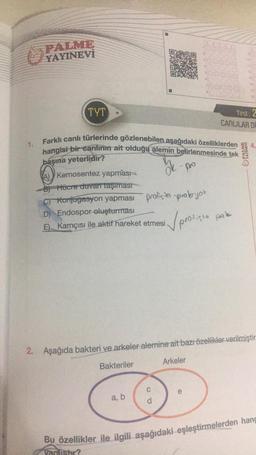 PALME
YAYINEVİ
TYT
Test: 2
CANLILAR D
1. Farklı canlı türlerinde gözlenebilen aşağıdaki özelliklerden
hangisi bir canlının ait olduğu alemin belirlenmesinde tek
başına yeterlidir?
A) Kemosentez yapması
B) Hücre duvarı taşıması
C) Konjugasyon yapması
D) Endospor oluşturması
E) Kamçısı ile aktif hareket etmesi
2. Aşağıda bakteri ve arkeler alemine ait bazı özellikler verilmiştir
Bakteriler
Arkeler
a, b
c
d
e
Bu özellikler ile ilgili aşağıdaki eşleştirmelerden hang